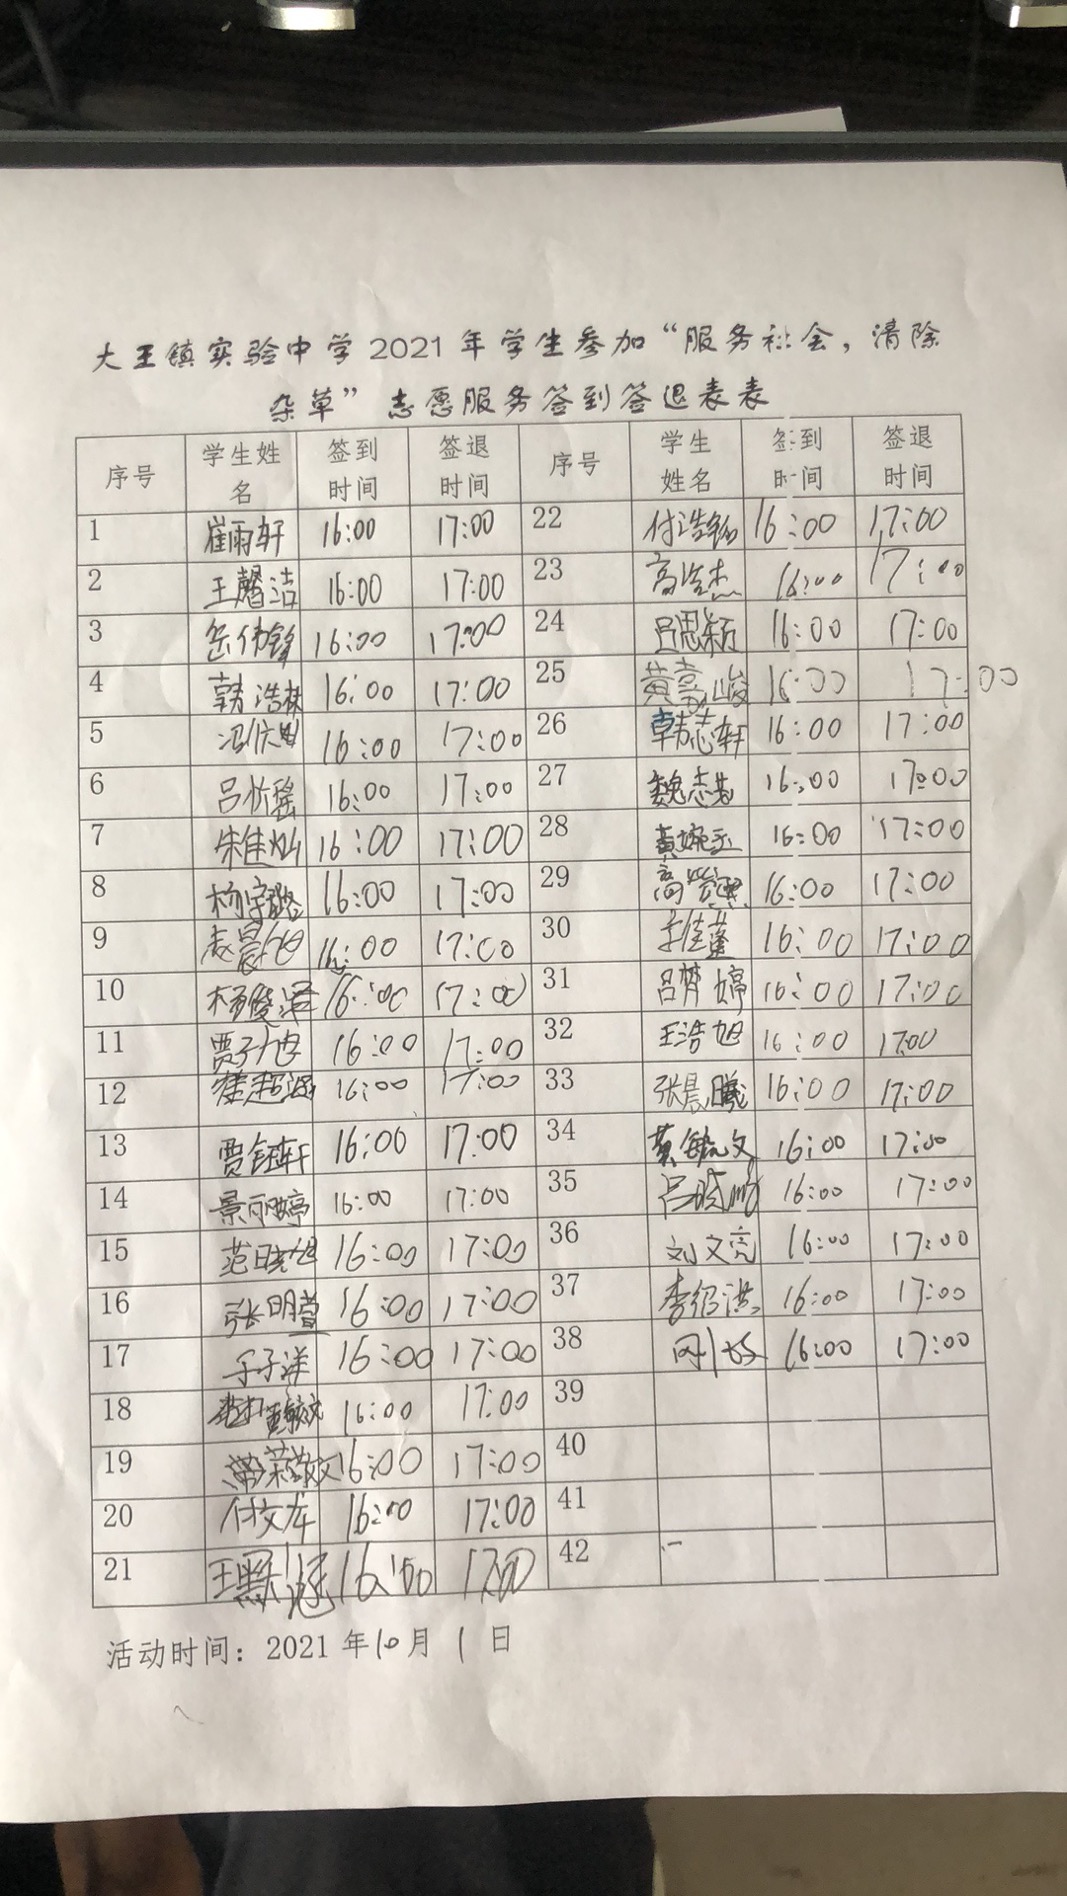 大王镇实验中学2021年学生参加“服务社会，清除
杂草”志愿服务签到签退表表
序号 学生姓名 签到时间 签退时间 序号 学生姓名 签到时间 签退时间
1 崔雨轩 16:00 17:00 22 付浩铭 16:00 17:00
2 王馨洁 16:00 17:00 23 高浩杰 16:00 17:00
3 岳伟锋 16:00 17:00 24 吕思颖 16:00 17:00
4 韩浩林 16:00 17:00 25 黄嵩峻 16:00 17:00
5 16:00 17:00 26 韩志轩 16:00 17:00
6 吕忻瑶 16:00 17:00 27 魏志浩 16:00 17:00
7 朱佳灿 16:00 17:00 28 黄婉玉 16:00 17:00
8 杨宇璐 16:00 17:00 29 16:00 17:00
9 16:00 17:00 30 李佳蓬 16:00 17:00
10 杨俊泽 16:00 17:00 31 吕梦婷 16:00 17:00
11 贾子旭 16:00 17:00 32 王浩旭 16:00 1700
12 16:00 17:00 33 张晨曦 16:00 17:00
13 贾钰轩 16:00 17:00 34 16:00 17:00
14 景丽婷 16:00 17:00 35 16:00 17:00
15 范晓旭 16:00 17:00 36 刘文亮 16:00 17:00
16 张明萱 16:00 17:00 37 李绍洪 16:00 17:00
17 于子洋 16:00 17:00 38 16:00 17:00
18 16:00 17:00 39
19 16:00 17:00 40
20 付文龙 16:00 17:00 41
21 16:00 1700 42
活动时间：2021年10月1日